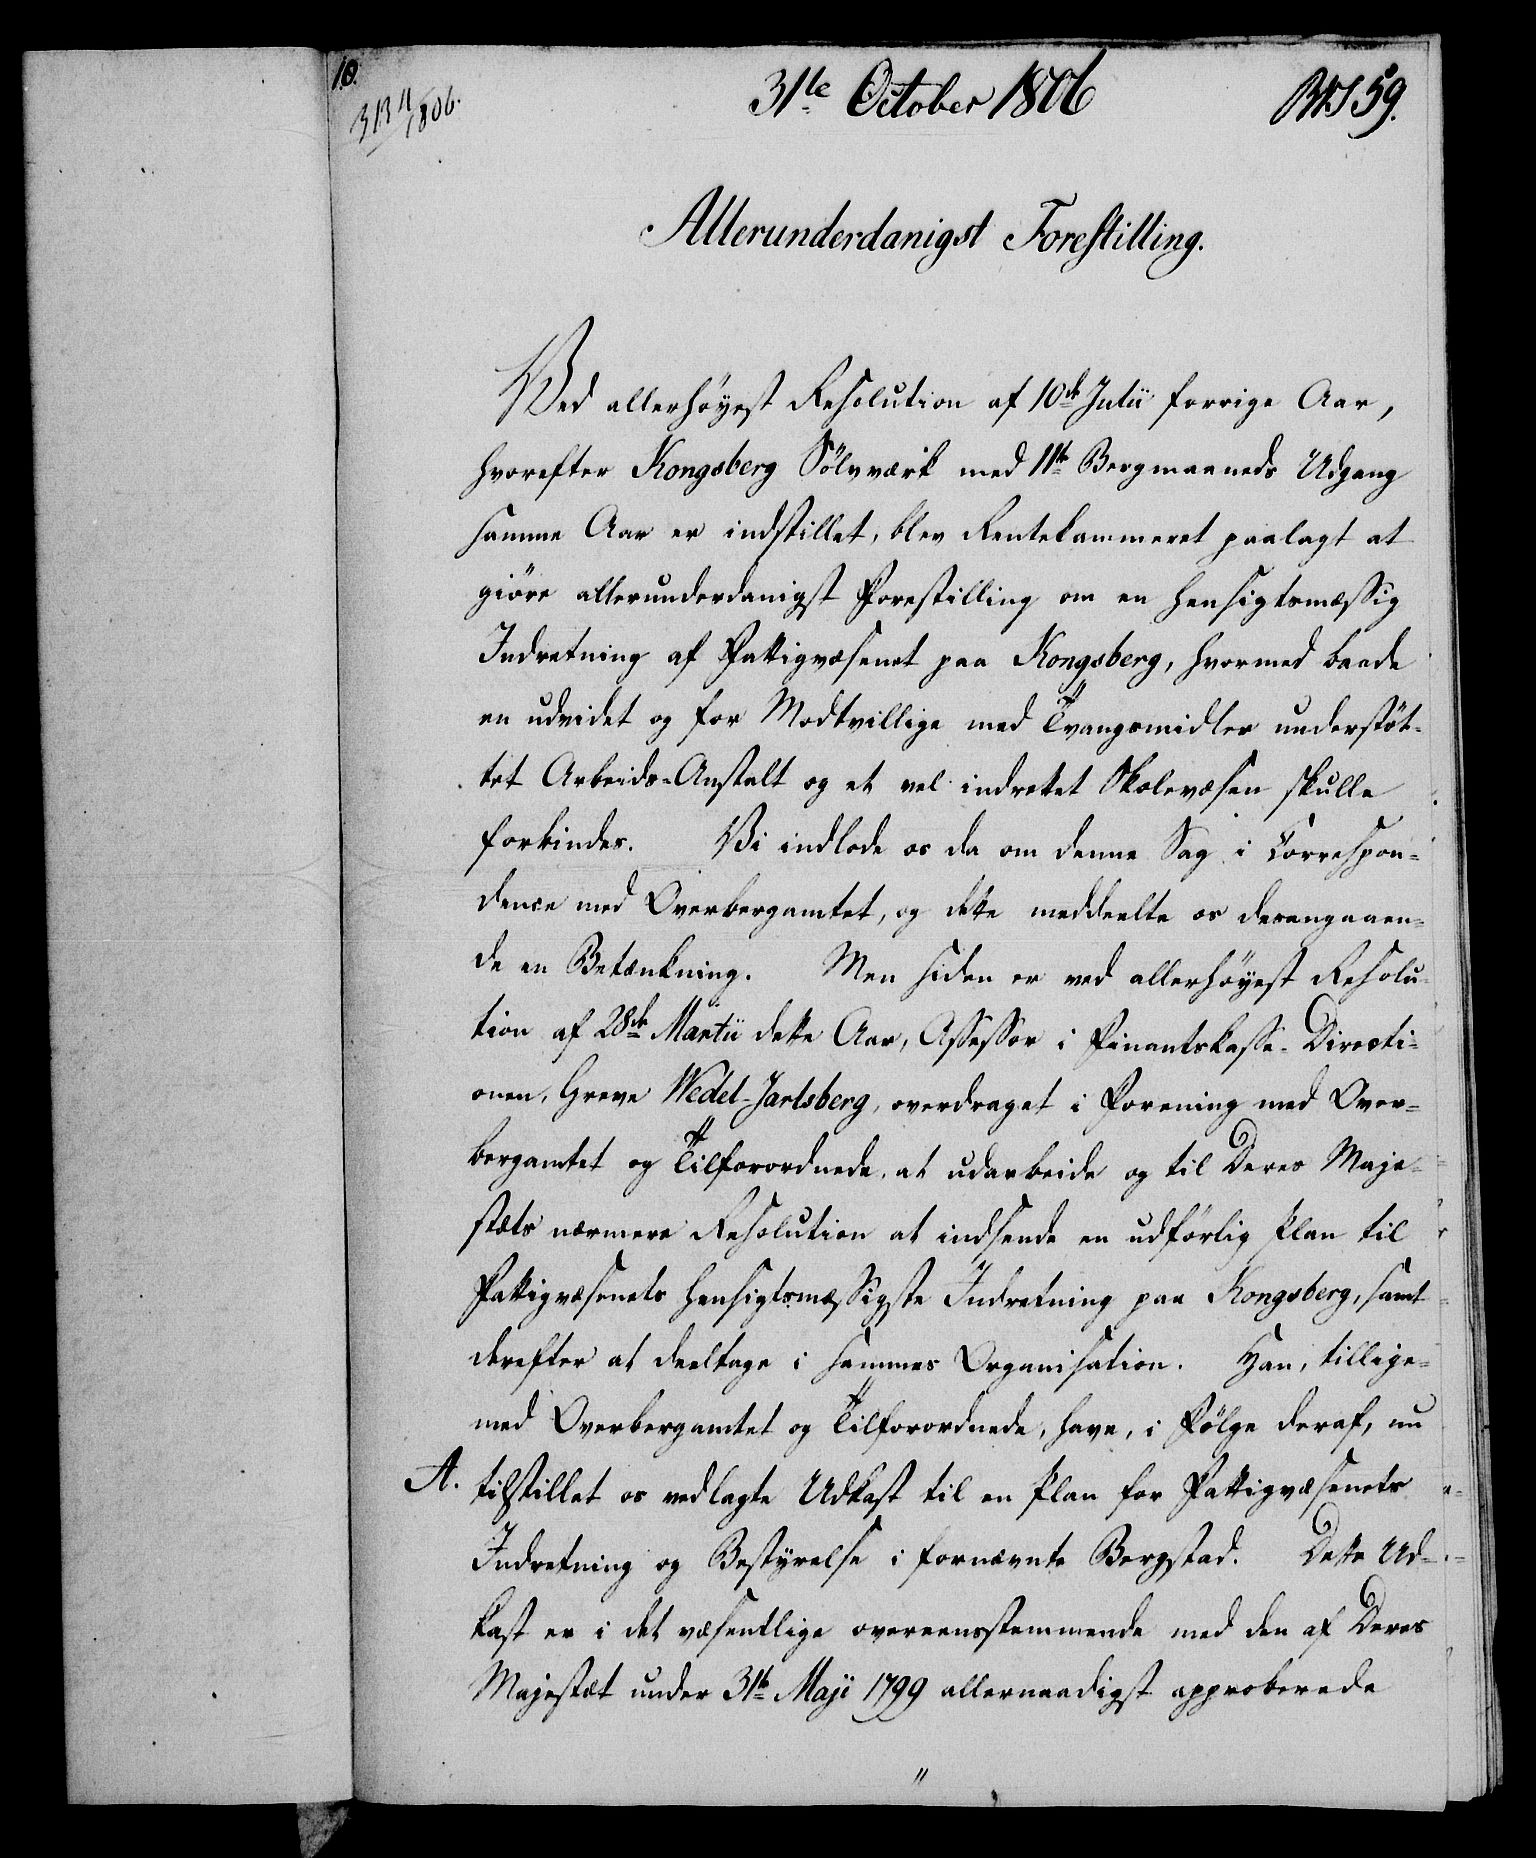 10.
3134/1806.
31te October 1806
No 59.
Allerunderdanigst Forestilling.
Ved allerhöyest Resolution af 10de Julii forrige Aar,
hvorefter Kongsberg Sölvværk med 11te Bergmaaneds Udgang
samme Aar er indstillet, blev Rentekammeret paalagt at
giöre allerunderdanigst Forestilling om en hensigtsmæssig
Indretning af Fattigvæsenet paa Kongsberg, hvormed baade
en udvidet og for Modtvillige med Tvangsmidler understöt-
tet Arbeids-Anstalt og et vel indrettet Skolevæsen skulle
forbindes. Vi indlode os da om denne Sag i Correspon-
dence med Overbergamtet, og dette meddeelte os derangaaen-
de en Betænkning. Men siden er ved allerhöyest Resolu-
tion af 28de Martii dette Aar, Assessor i Finantskasse-Directi-
onen, Greve Wedel-Jarlsberg, overdraget i Forening med Over-
bergamtet og Tilforordnede, at udarbeide og til Deres Maje-
stæts nærmere Resolution at indsende en udförlig Plan til
Fattigvæsenets hensigtsmæssigste Indretning paa Kongsberg, samt
derefter at deeltage i sammes Organisation. Han, tillige-
med Overbergamtet og Tilforordnede, have, i Fölge deraf, nu
A. tilstillet os vedlagte Udkast til en Plan for Fattigvæsenets
Indretning og Bestyrelse i fornævnte Bergstad. Dette Ud-
kast er i det væsentlige overeensstemmende med den af Deres
Majestæt under 31te Maji 1799 allernaadigst approberede
"